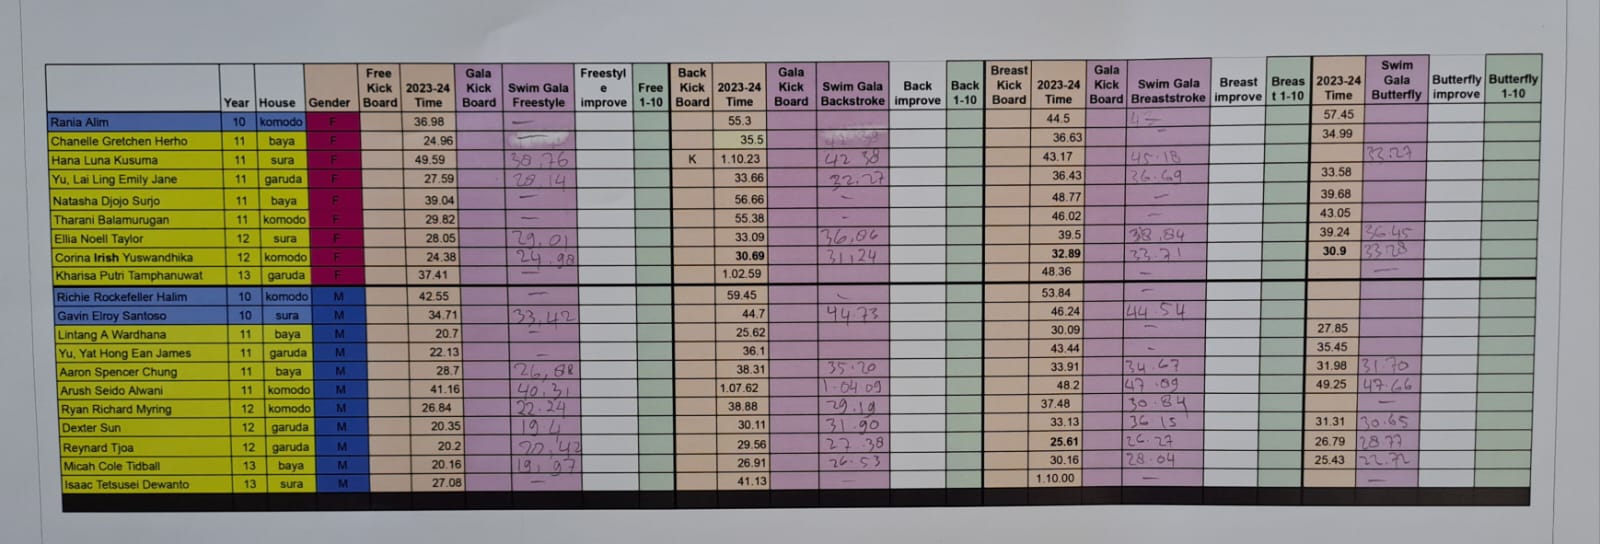 Year House Gender Free Kick Board 2023-24 Time Gala Kick Board Swim Gala Freestyle Freestyle improve Free 1-10 Back Kick Board 2023-24 Time Gala Kick Board Swim Gala Backstroke Back improve Back 1-10 Breast Kick Board 2023-24 Time Gala Kick Board Swim Gala Breaststroke Breast improve Breast 1-10 2023-24 Time Swim Gala Butterfly Butterfly improve Butterfly 1-10
Rania Alim 10 komodo F 36.98 — 55.3 44.5 57.45
Chanelle Gretchen Herho 11 baya F 24.96 35.5 36.63 — 34.99
Hana Luna Kusuma 11 sura F 49.59 38,76 K 1.10.23 42 38 43.17 45.18 33.27
Yu, Lai Ling Emily Jane 11 garuda F 27.59 28,14 33.66 32.27 36.43 36.69 33.58
Natasha Djojo Surjo 11 baya F 39.04 — 56.66 - 48.77 — 39.68
Tharani Balamurugan 11 komodo F 29.82 — 55.38 - 46.02 - 43.05
Ellia Noell Taylor 12 sura F 28.05 29,01 33.09 36,06 39.5 38,84 39.24 36.45
Corina Irish Yuswandhika 12 komodo F 24.38 24.98 30.69 31,24 32.89 33.71 30.9 33.28
Kharisa Putri Tamphanuwat 13 garuda F 37.41 — 1.02.59 48.36 - —
Richie Rockefeller Halim 10 komodo M 42.55 — 59.45 - 53.84 -
Gavin Elroy Santoso 10 sura M 34.71 33,42 44.7 44.73 46.24 44.54
Lintang A Wardhana 11 baya M 20.7 - 25.62 30.09 — 27.85
Yu, Yat Hong Ean James 11 garuda M 22.13 — 36.1 43.44 - 35.45
Aaron Spencer Chung 11 baya M 28.7 26,88 38.31 35.20 33.91 34.67 31.98 31.70
Arush Seido Alwani 11 komodo M 41.16 40,31 1.07.62 1.04.09 48.2 47.09 49.25 47.66
Ryan Richard Myring 12 komodo M 26.84 22.24 38.88 29.19 37.48 30.84 —
Dexter Sun 12 garuda M 20.35 19.4 30.11 31.90 33.13 36 15 31.31 30.65
Reynard Tjoa 12 garuda M 20.2 20,42 29.56 27.38 25.61 26.27 26.79 28.77
Micah Cole Tidball 13 baya M 20.16 19,97 26.91 26.53 30.16 28.04 25.43 22.72
Isaac Tetsusei Dewanto 13 sura M 27.08 — 41.13 — 1.10.00 — —